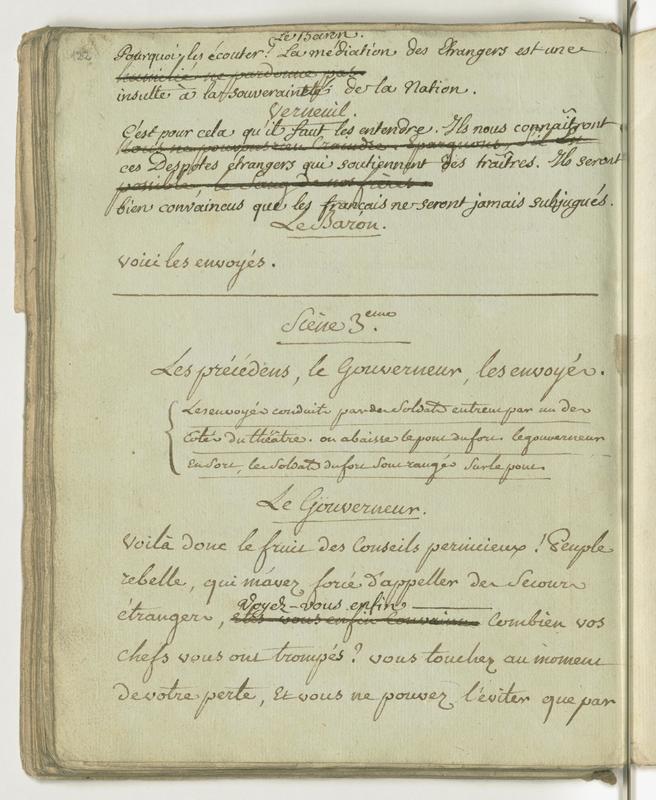 122
Le Baron.
Pourquoi les écouter? La médiation des Etrangers est une
insulte à la souveraineté de la Nation.
Verneuil.
C'est pour cela qu'il faut les entendre. Ils nous connaîtront
ces Despotes étrangers qui soutiennent des traîtres. Ils seront
possible le sang de nos frères
bien convaincus que les français ne seront jamais subjugués.
Le Baron.
voici les envoyés.
Scène 3.eme
Les précédens, le Gouverneur, les envoyés.
Les envoyés conduits par des Soldats entrent par un des
Cotés du théâtre. on abaisse le pont du fort. le gouverneur
en sort, les Soldats du fort sont rangés sur le pont.
Le Gouverneur.
Voilà donc le fruit des Conseils pernicieux! Peuple
rebelle, qui m'avez forcé d'appeller des Secours
Voyez-vous enfin
étrangers, êtes vous enfin convaincus Combien vos
chefs vous ont trompés? vous touchez au moment
de votre perte, Et vous ne pouvez l'éviter que par